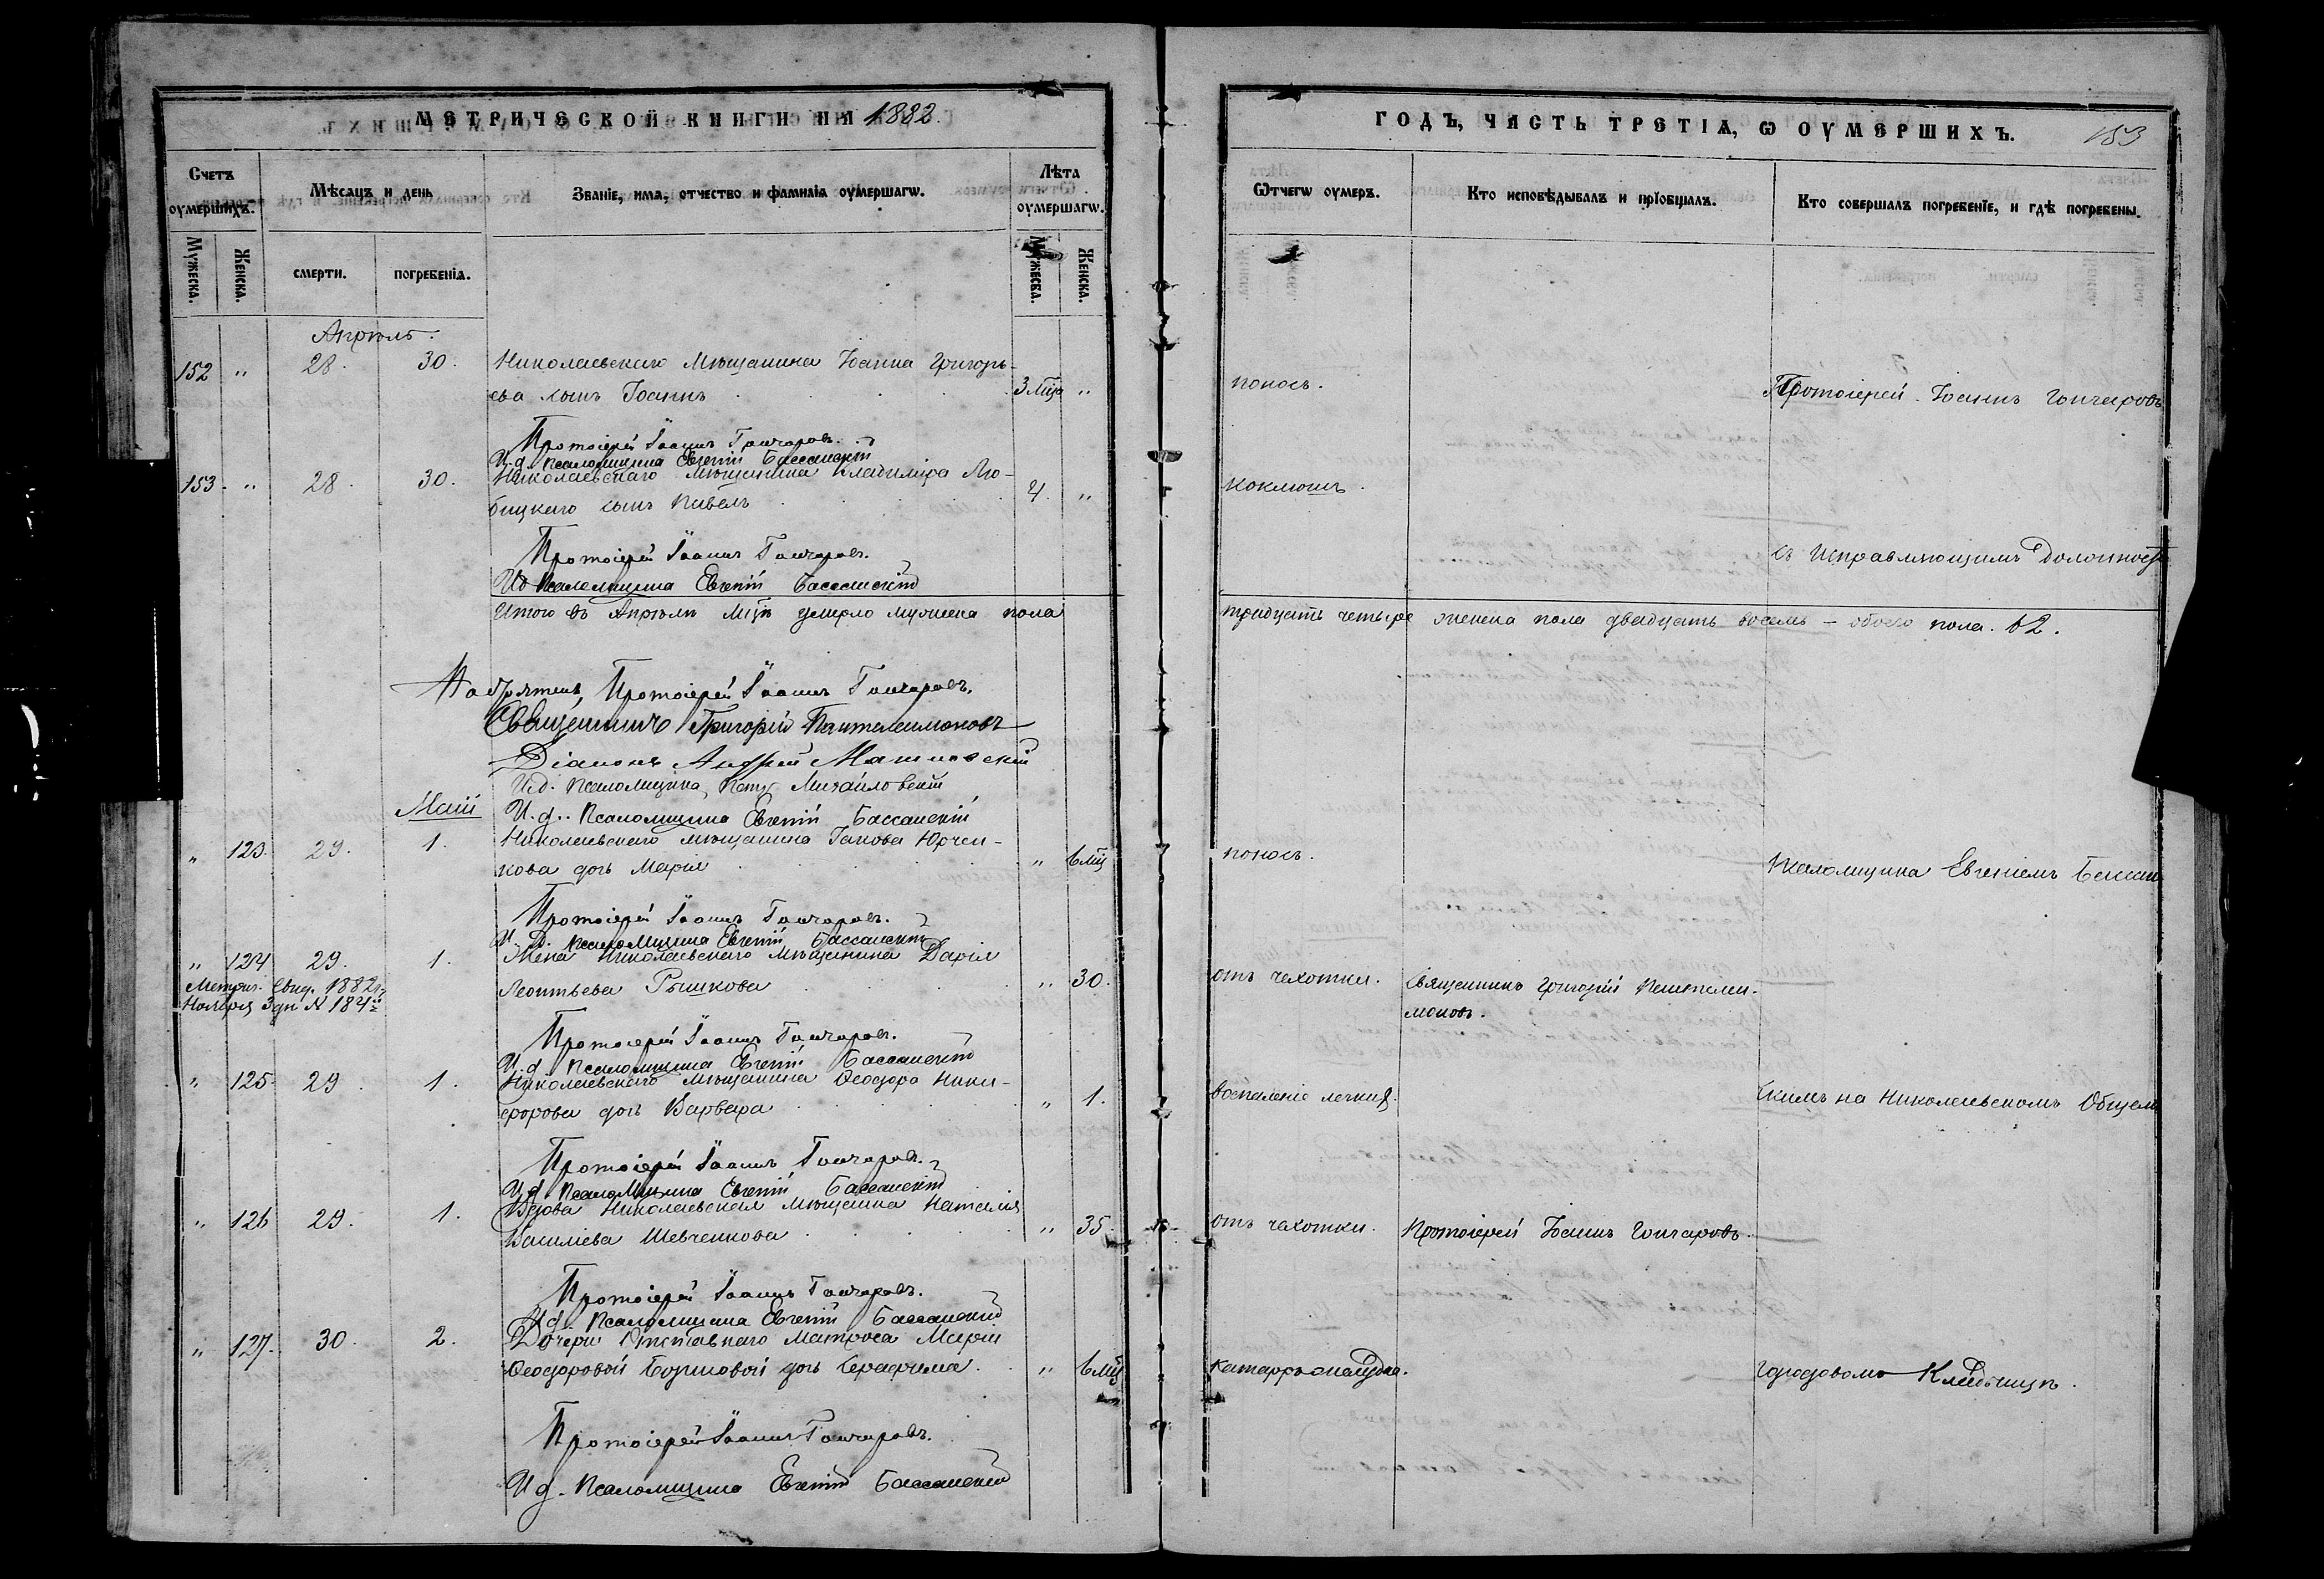 МЕТРИЧЕСКОЙ КНИГИ НА 1882.
Счетъ оумершихъ.
Мѣсяцъ и день
Званіе, имя, отчество и фамилія оумершагѡ.
Лѣта оумершагѡ.
Мужеска.
Женска.
смерти.
погребенія.
Мужеска.
Женска.
Апрѣль.
152 " 28. 30. Николаевскаго Мѣщанина Іоанна Григорь-
ева сынъ Іоаннъ 3 мца "
Протоіерей Іоаннъ Гончаровъ.
И.д. Псаломщика Евгеній Бассанскій
153 " 28. 30. Николаевскаго Мѣщанина Владиміра Лю-
бицкаго сынъ Павелъ 4. "
Протоіерей Іоаннъ Гончаровъ.
И.д. Псаломщика Евгеній Бассанскій
Итого въ Апрѣлѣ Мцѣ умерло мужеска пола
Протоіерей Іоаннъ Гончаровъ.
Священникъ Григорій Пантелеимоновъ
Діаконъ Андрей
И.д. Псаломщика, Петръ Михайловскій
Май
И.д. Псаломщика Евгеній Бассанскій
" 123. 29. 1. Николаевскаго мѣщанина Іакова Юрчен-
кова дочь Марія " 6 мц
Протоіерей Іоаннъ Гончаровъ.
И.д. Псаломщика Евгеній Бассанскій
" 124 29. 1. Жена Николаевскаго Мѣщанина Дарія
Леонтьева Рышкова " 30.
Метрич. свид. 1882 г.
Ноября 3 дн № 184
Протоіерей Іоаннъ Гончаровъ.
И.д. Псаломщика Евгеній Бассанскій
" 125. 29. 1. Николаевскаго Мѣщанина Ѳеодора Ники-
форова дочь Варвара " 1.
Протоіерей Іоаннъ Гончаровъ.
И.д. Псаломщика Евгеній Бассанскій
" 126 29. 1. Вдова Николаевская Мѣщанка Наталія
Василіева Шевченкова " 35.
Протоіерей Іоаннъ Гончаровъ.
И.д. Псаломщика Евгеній Бассанскій
" 127. 30. 2. Дочери Отставнаго Матроса Маріи
Ѳеодоровой дочь Серафима " 6 мц
Протоіерей Іоаннъ Гончаровъ.
И.д. Псаломщика Евгеній Бассанскій
ГОДЪ, ЧАСТЬ ТРЕТІЯ, Ѡ ОУМЕРШИХЪ.
153
Ѿчегѡ оумеръ.
Кто исповѣдывалъ и пріобщалъ.
Кто совершалъ погребеніе, и гдѣ погребены.
поносъ.
Протоіерей Іоаннъ Гончаровъ
коклюшъ.
съ Исправляющимъ Должность
тридцать четыре женска пола двадцать восемь – обоего пола. 62.
поносъ.
Псаломщика Евгеніемъ Бассан
отъ чахотки. Священникъ Григорій Пантелеи-
моновъ.
воспаленіе легкихъ.
скимъ на Николаевскомъ Общем
отъ чахотки. Протоіерей Іоаннъ Гончаровъ.
катарръ желудка.
городовомъ Кладбищѣ.